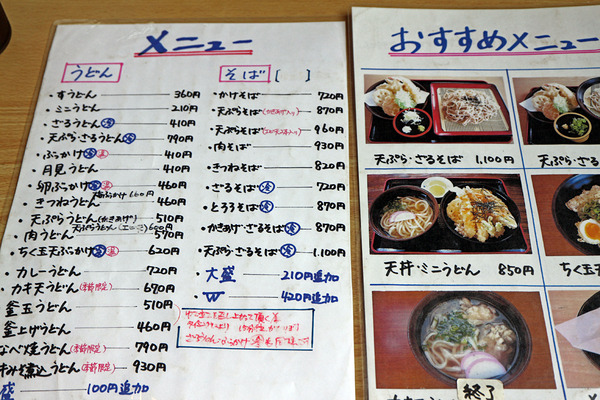 メニュー
うどん
・すうどん 360円
・ミニうどん 210円
・ざるうどん 冷 410円
・天ぷらざるうどん 冷 790円
・ぶっかけ 冷 温 410円
・月見うどん 410円
・卵ぶっかけ 冷 温 460円
・きつねうどん 460円
・天ぷらうどん(かきあげ) 510円
・肉うどん 570円
・ちく玉天ぶっかけ 冷 温 620円
・カレーうどん 720円
・カキ天うどん(季節限定) 690円
釜玉うどん 510円
釜上げうどん 460円
なべ焼うどん(季節限定) 790円
煮込うどん(季節限定) 930円
盛 100円追加
そば [ ]
・かけそば 720円
・天ぷらそば(かきあげ入り) 870円
・天ぷらそば 960円
・肉そば 930円
・きつねそば 820円
・ざるそば 冷 720円
・とろろそば 冷 870円
・かきあげ・ざるそば 冷 870円
・天ぷら・ざるそば 冷 1.100円
・大盛 210円追加
・W 420円追加
おすすめメニュー
天ぷら・ざるそば 1,100円
天ぷら・ざ
天丼・ミニうどん 850円
ちく玉天
終了